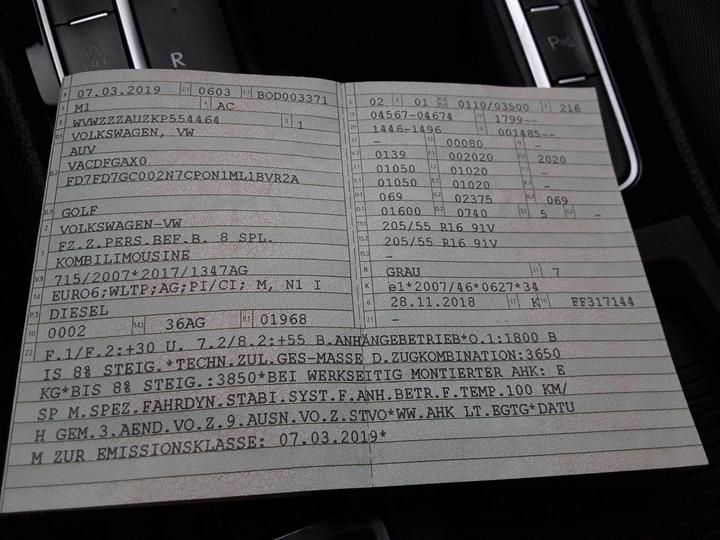 R
P
B 07.03.2019 2.1 0603 2.2 BOD003371
J M1 4 AC
E WVWZZZAUZKP554464 3 1
D.1 VOLKSWAGEN, VW
AUV
D.2 VACDFGAX0
FD7FD7GC002N7CPON1ML1BVR2A
D.3 GOLF
2 VOLKSWAGEN-VW
5 FZ.Z.PERS.BEF.B. 8 SPL.
KOMBILIMOUSINE
V.9 715/2007*2017/1347AG
14 EURO6;WLTP;AG;PI/CI; M, N1 I
P.3 DIESEL
10 0002 14.1 36AG P.1 01968
L 02 9 01 0110/03500 T 216
18 04567-04674 19 1799--
20 1446-1496 G 001485--
12 - 13 00080 Q -
V.7 0139 F.1 002020 F.2 2020
7.1 01050 7.2 01020 7.3 -
8.1 01050 8.2 01020 8.3 -
U.1 069 U.2 02375 U.3 069
O.1 01600 O.2 0740 S.1 5 S.2 -
15.1 205/55 R16 91V
15.2 205/55 R16 91V
15.3 -
R GRAU 11 7
K e1*2007/46*0627*34
6 28.11.2018 17 K 16 FF317144
21 -
22 F.1/F.2:+30 U. 7.2/8.2:+55 B.ANHÄNGEBETRIEB*O.1:1800 B
IS 8% STEIG.*TECHN.ZUL.GES-MASSE D.ZUGKOMBINATION:3650
KG*BIS 8% STEIG.:3850*BEI WERKSEITIG MONTIERTER AHK: E
SP M.SPEZ.FAHRDYN.STABI.SYST.F.ANH.BETR.F.TEMP.100 KM/
H GEM.3.AEND.VO.Z.9.AUSN.VO.Z.STVO*WW.AHK LT.EGTG*DATU
M ZUR EMISSIONSKLASSE: 07.03.2019*